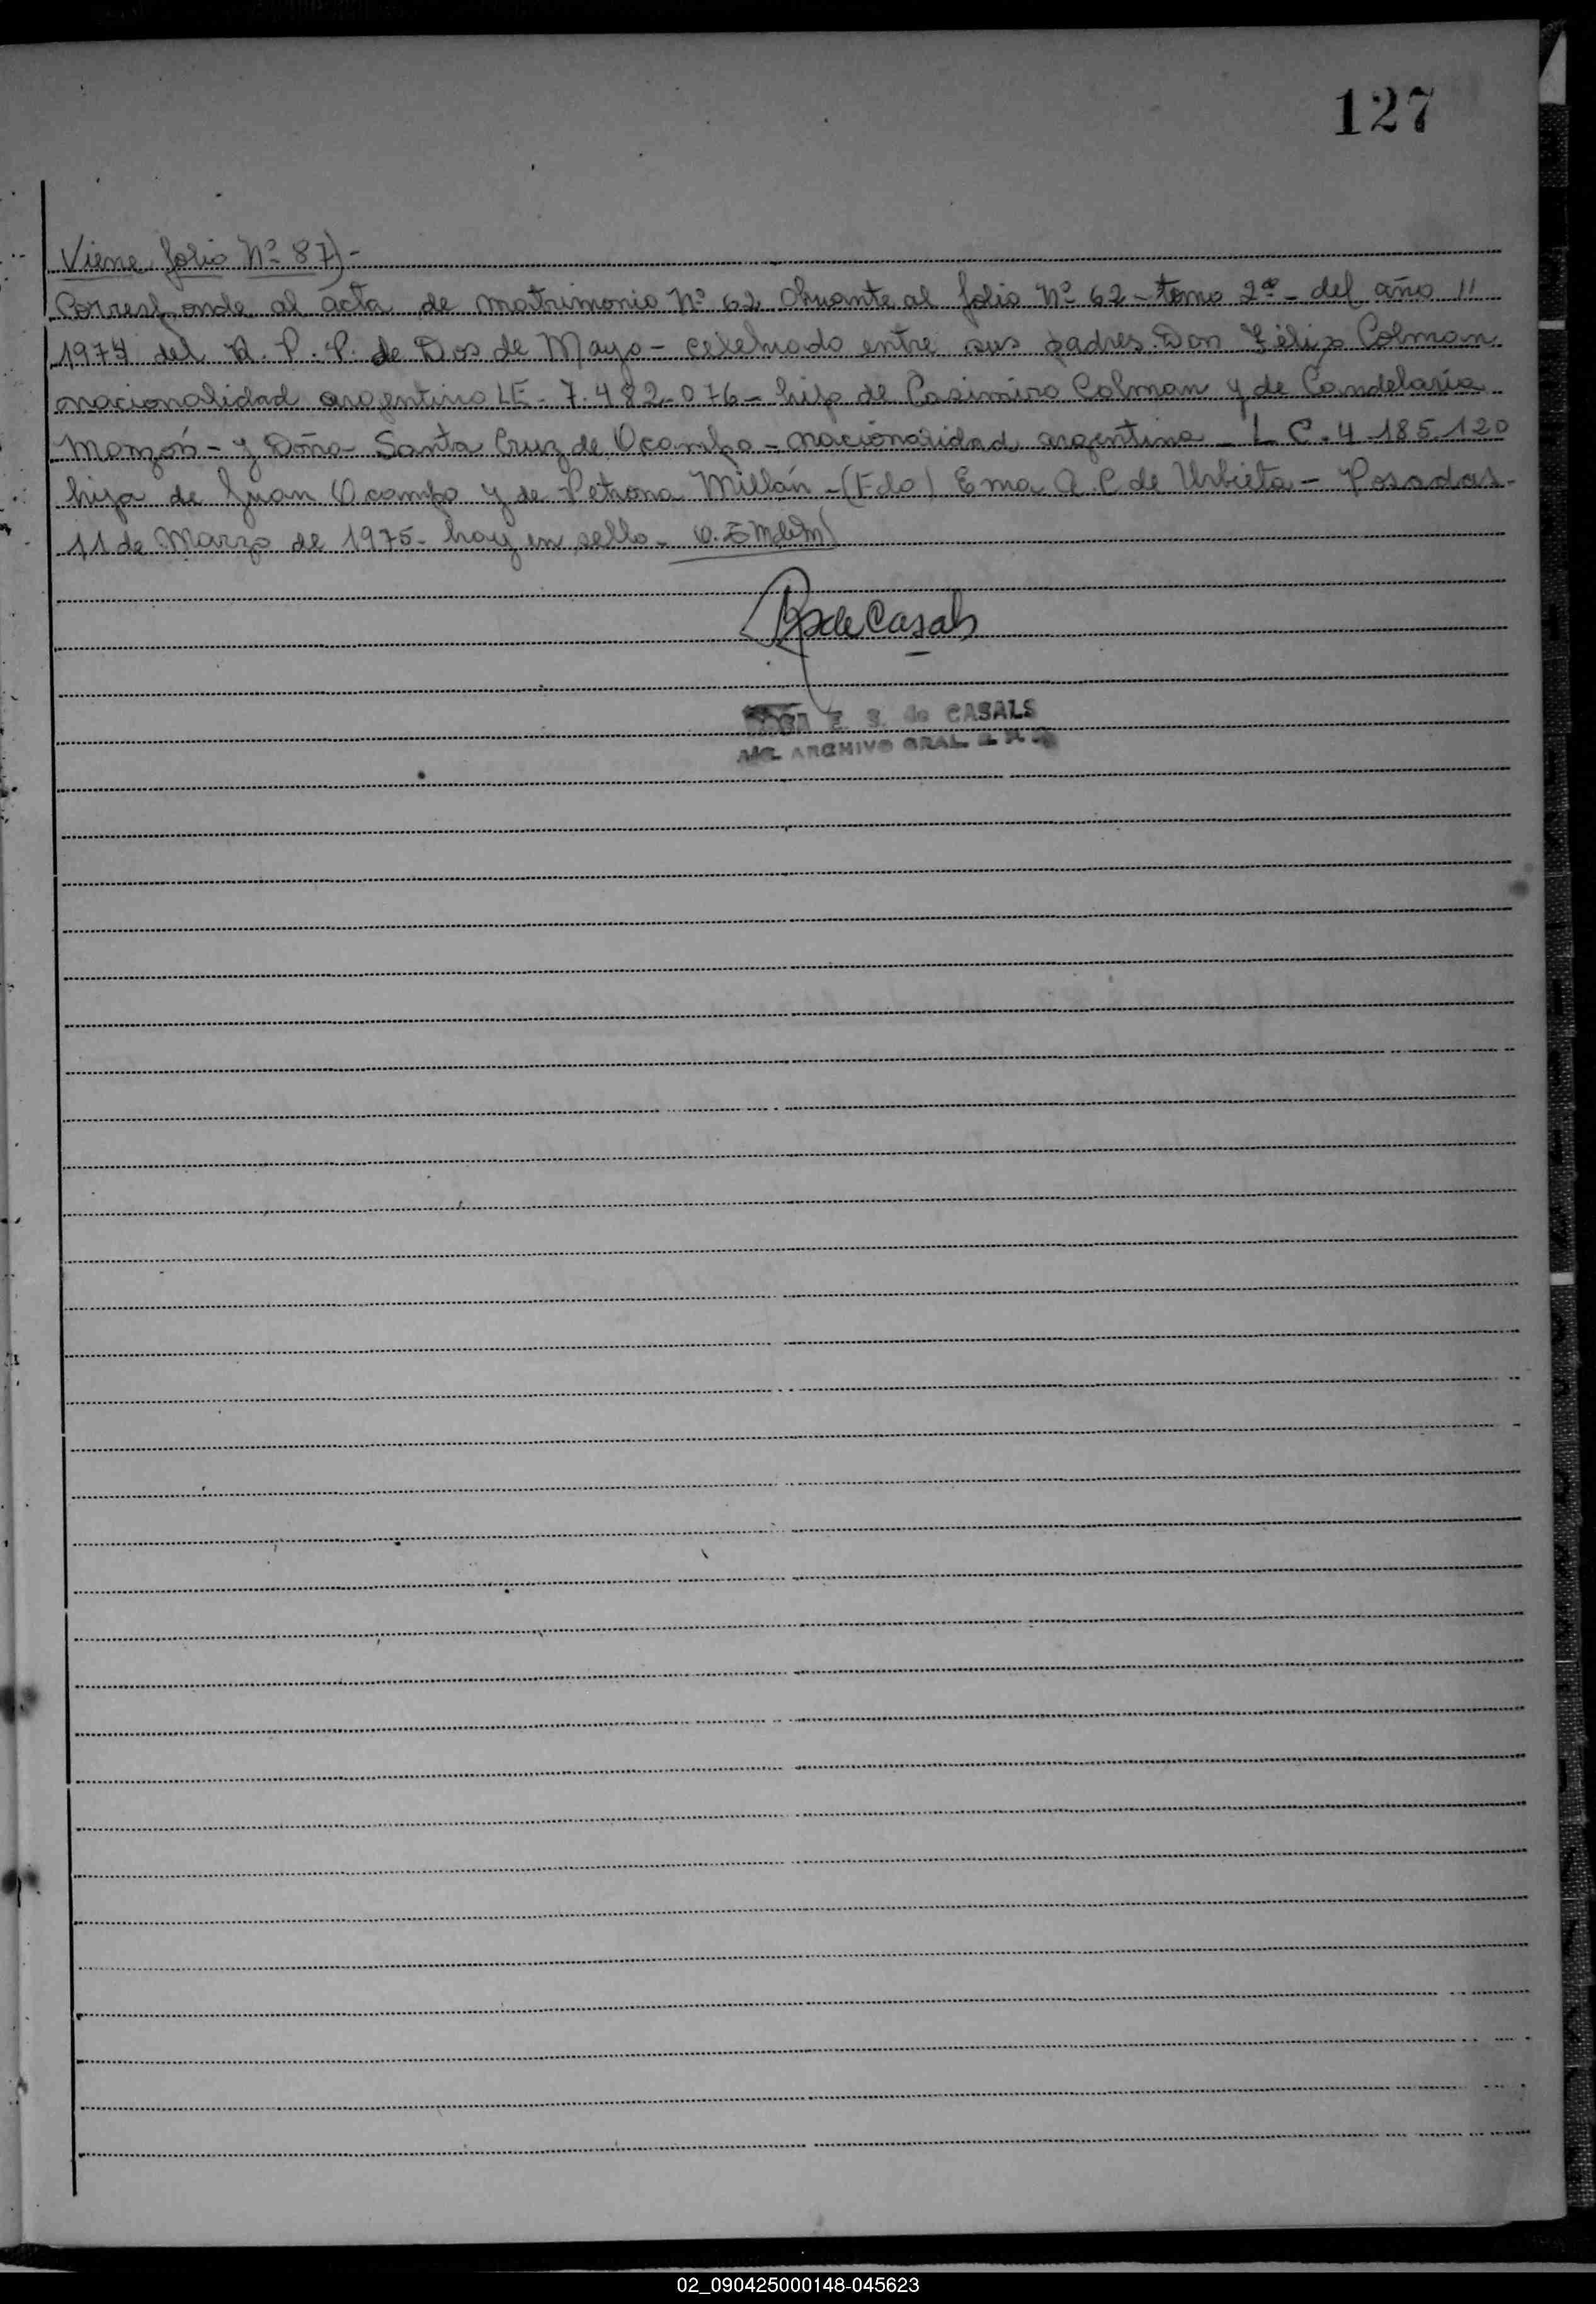 127
Viene folio Nº 87)-
Corresponde al acta de matrimonio Nº 62 obrante al folio Nº 62 - tomo 2º - del año //
1974 del R. P. P. de Dos de Mayo - celebrado entre sus padres Don Félix Colman
nacionalidad argentino LE - 7.482.076 - hijo de Casimiro Colman y de Candelaria
Monzón - y Doña Santa Cruz de Ocampo - nacionalidad argentina - L C. 4.185.120
hija de Juan Ocampo y de Petrona Millán - (Fdo) Ema A C de Urbieta - Posadas -
11 de Marzo de 1975 - hay un sello -
de Casals
E. S. de CASALS
ARCHIVO GRAL.
02_090425000148-045623